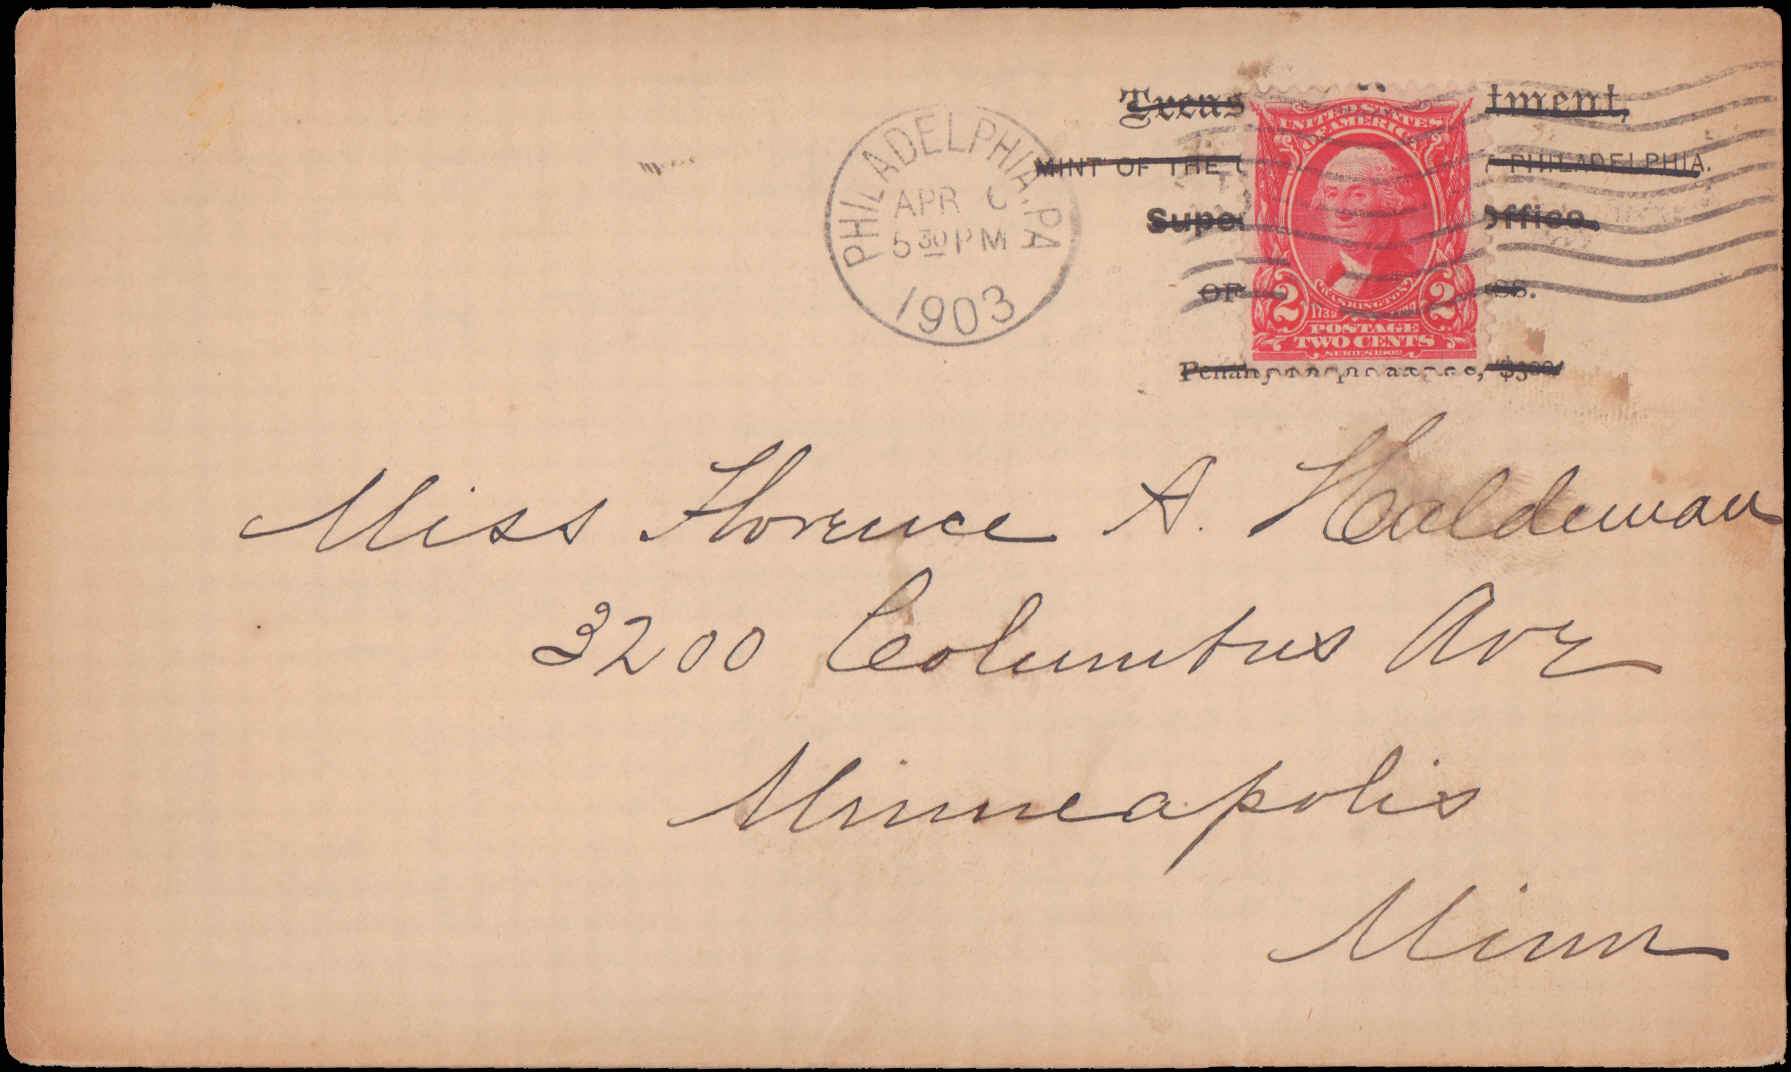 Treas tment,
MINT OF THE U PHILADELPHIA.
Supe Office
OF SS.
Penalty $300
PHILADELPHIA, PA
APR
5 30 PM
1903
UNITED STATES
OF AMERICA
WASHINGTON
1732
2 2
POSTAGE
TWO CENTS
SERIES 1902
Miss Florence A. Haldeman
3200 Columbus Ave
Minneapolis
Minn